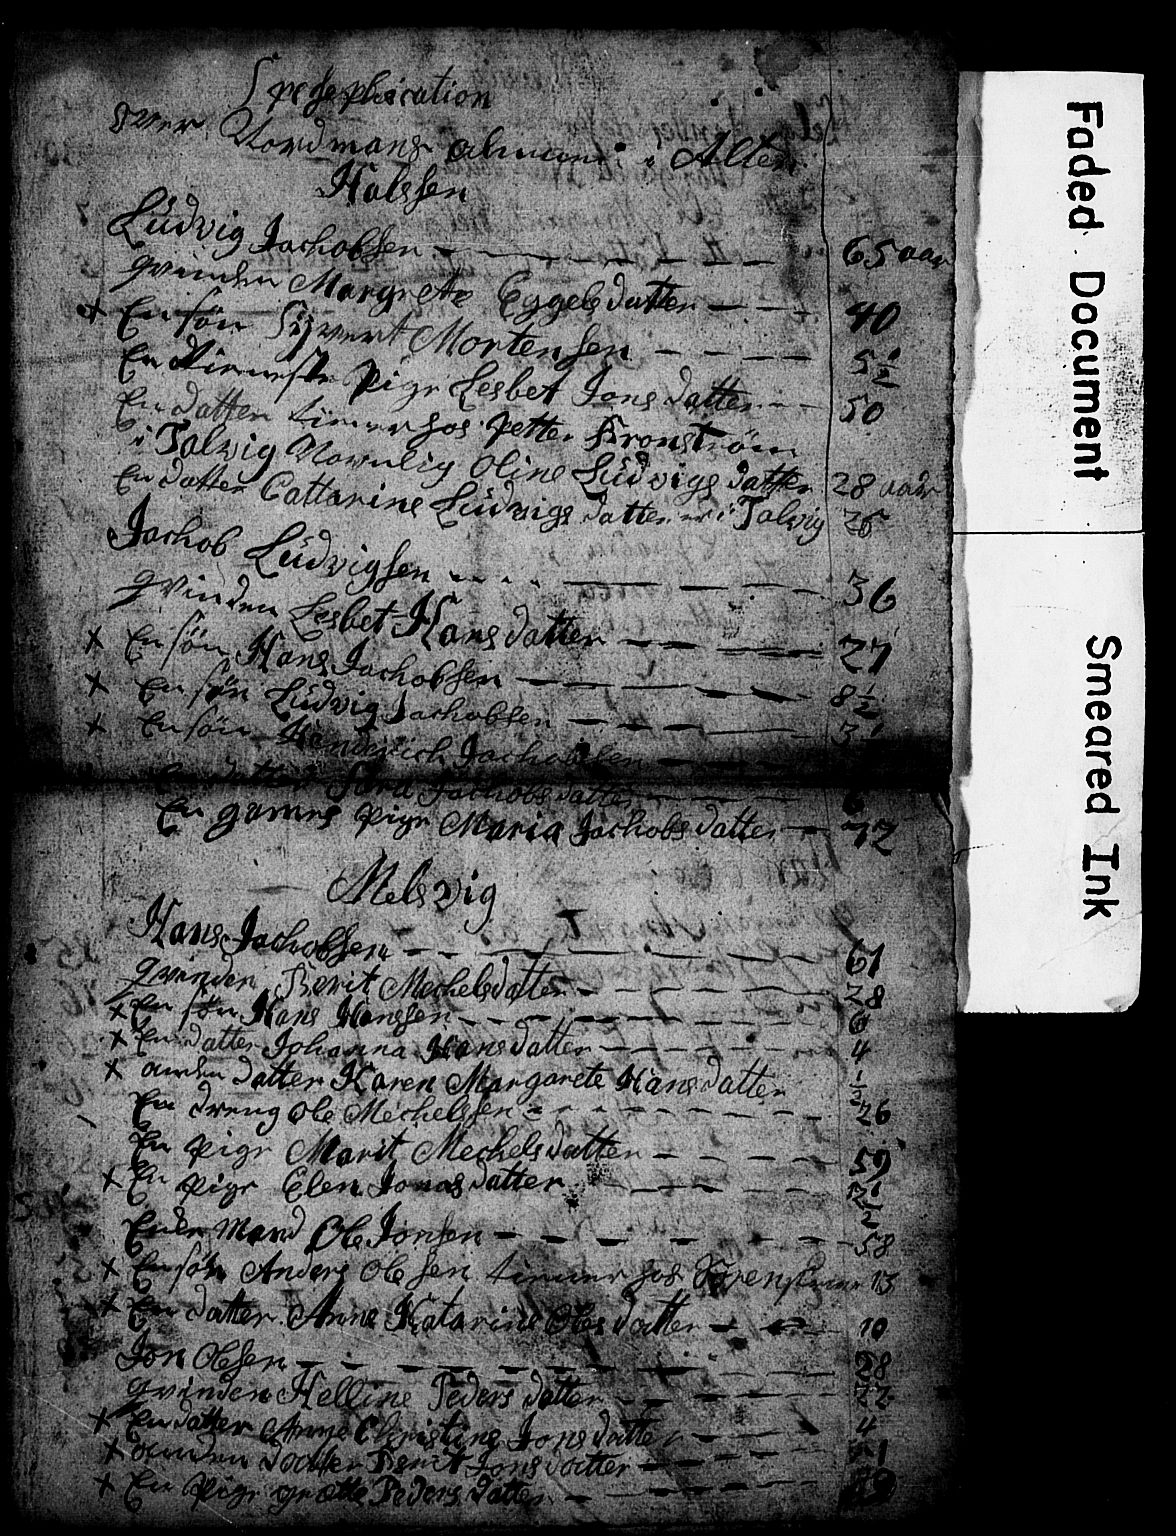 Spesephication
over Nordmans almuen i Alten
Halssen
Lüdvig Jachobsen 65 aar
qvinden Margrete Eggelsdatter 40
x En søn Syvert Mortensen 5½
En tieneste pige Lesbet Jonsdatter 50
En datter tiener hos Petter Kronstrøm
i Talvig Navnlig Oline Lüdvigsdatter 28 aar
En datter Cattarine Lüdvigsdatter er i Talvig 26
Jachob Lüdvigsen 36
qvinden Lesbet Hansdatter 27
x En søn Hans Jachobsen 8½
x En søn Lüdvig Jachobsen 3
x En søn Henderich Jachobsen
En datter Sara Jachobsdatter 6
En gamel pige Maria Jachobsdatter 72
Melsvig
Hans Jachobsen 61
qvinden Berit Mechelsdatter 28
x En søn Hans Hanssen 6
x En datter Johanna Hansdatter 4
x anden datter Karen Margarete Hansdatter ½
En dreng Ole Mechelssen 26
En pige Marit Mechelsdatter 59
x En pige Elen Jonasdatter
Ender Mand Ole Jonsen 58
x En søn Anders Olesen tiener hos 13
x En datter Anne Katarine Olesdatter 10
Jon Olsen 28
qvinden Helline Pedersdatter 22
x En datter Anne Christine Jonsdatter 4
x anden datter Berit Jonsdatter 1
x En pige grætte Pedersdatter
Faded Document
Smeared Ink